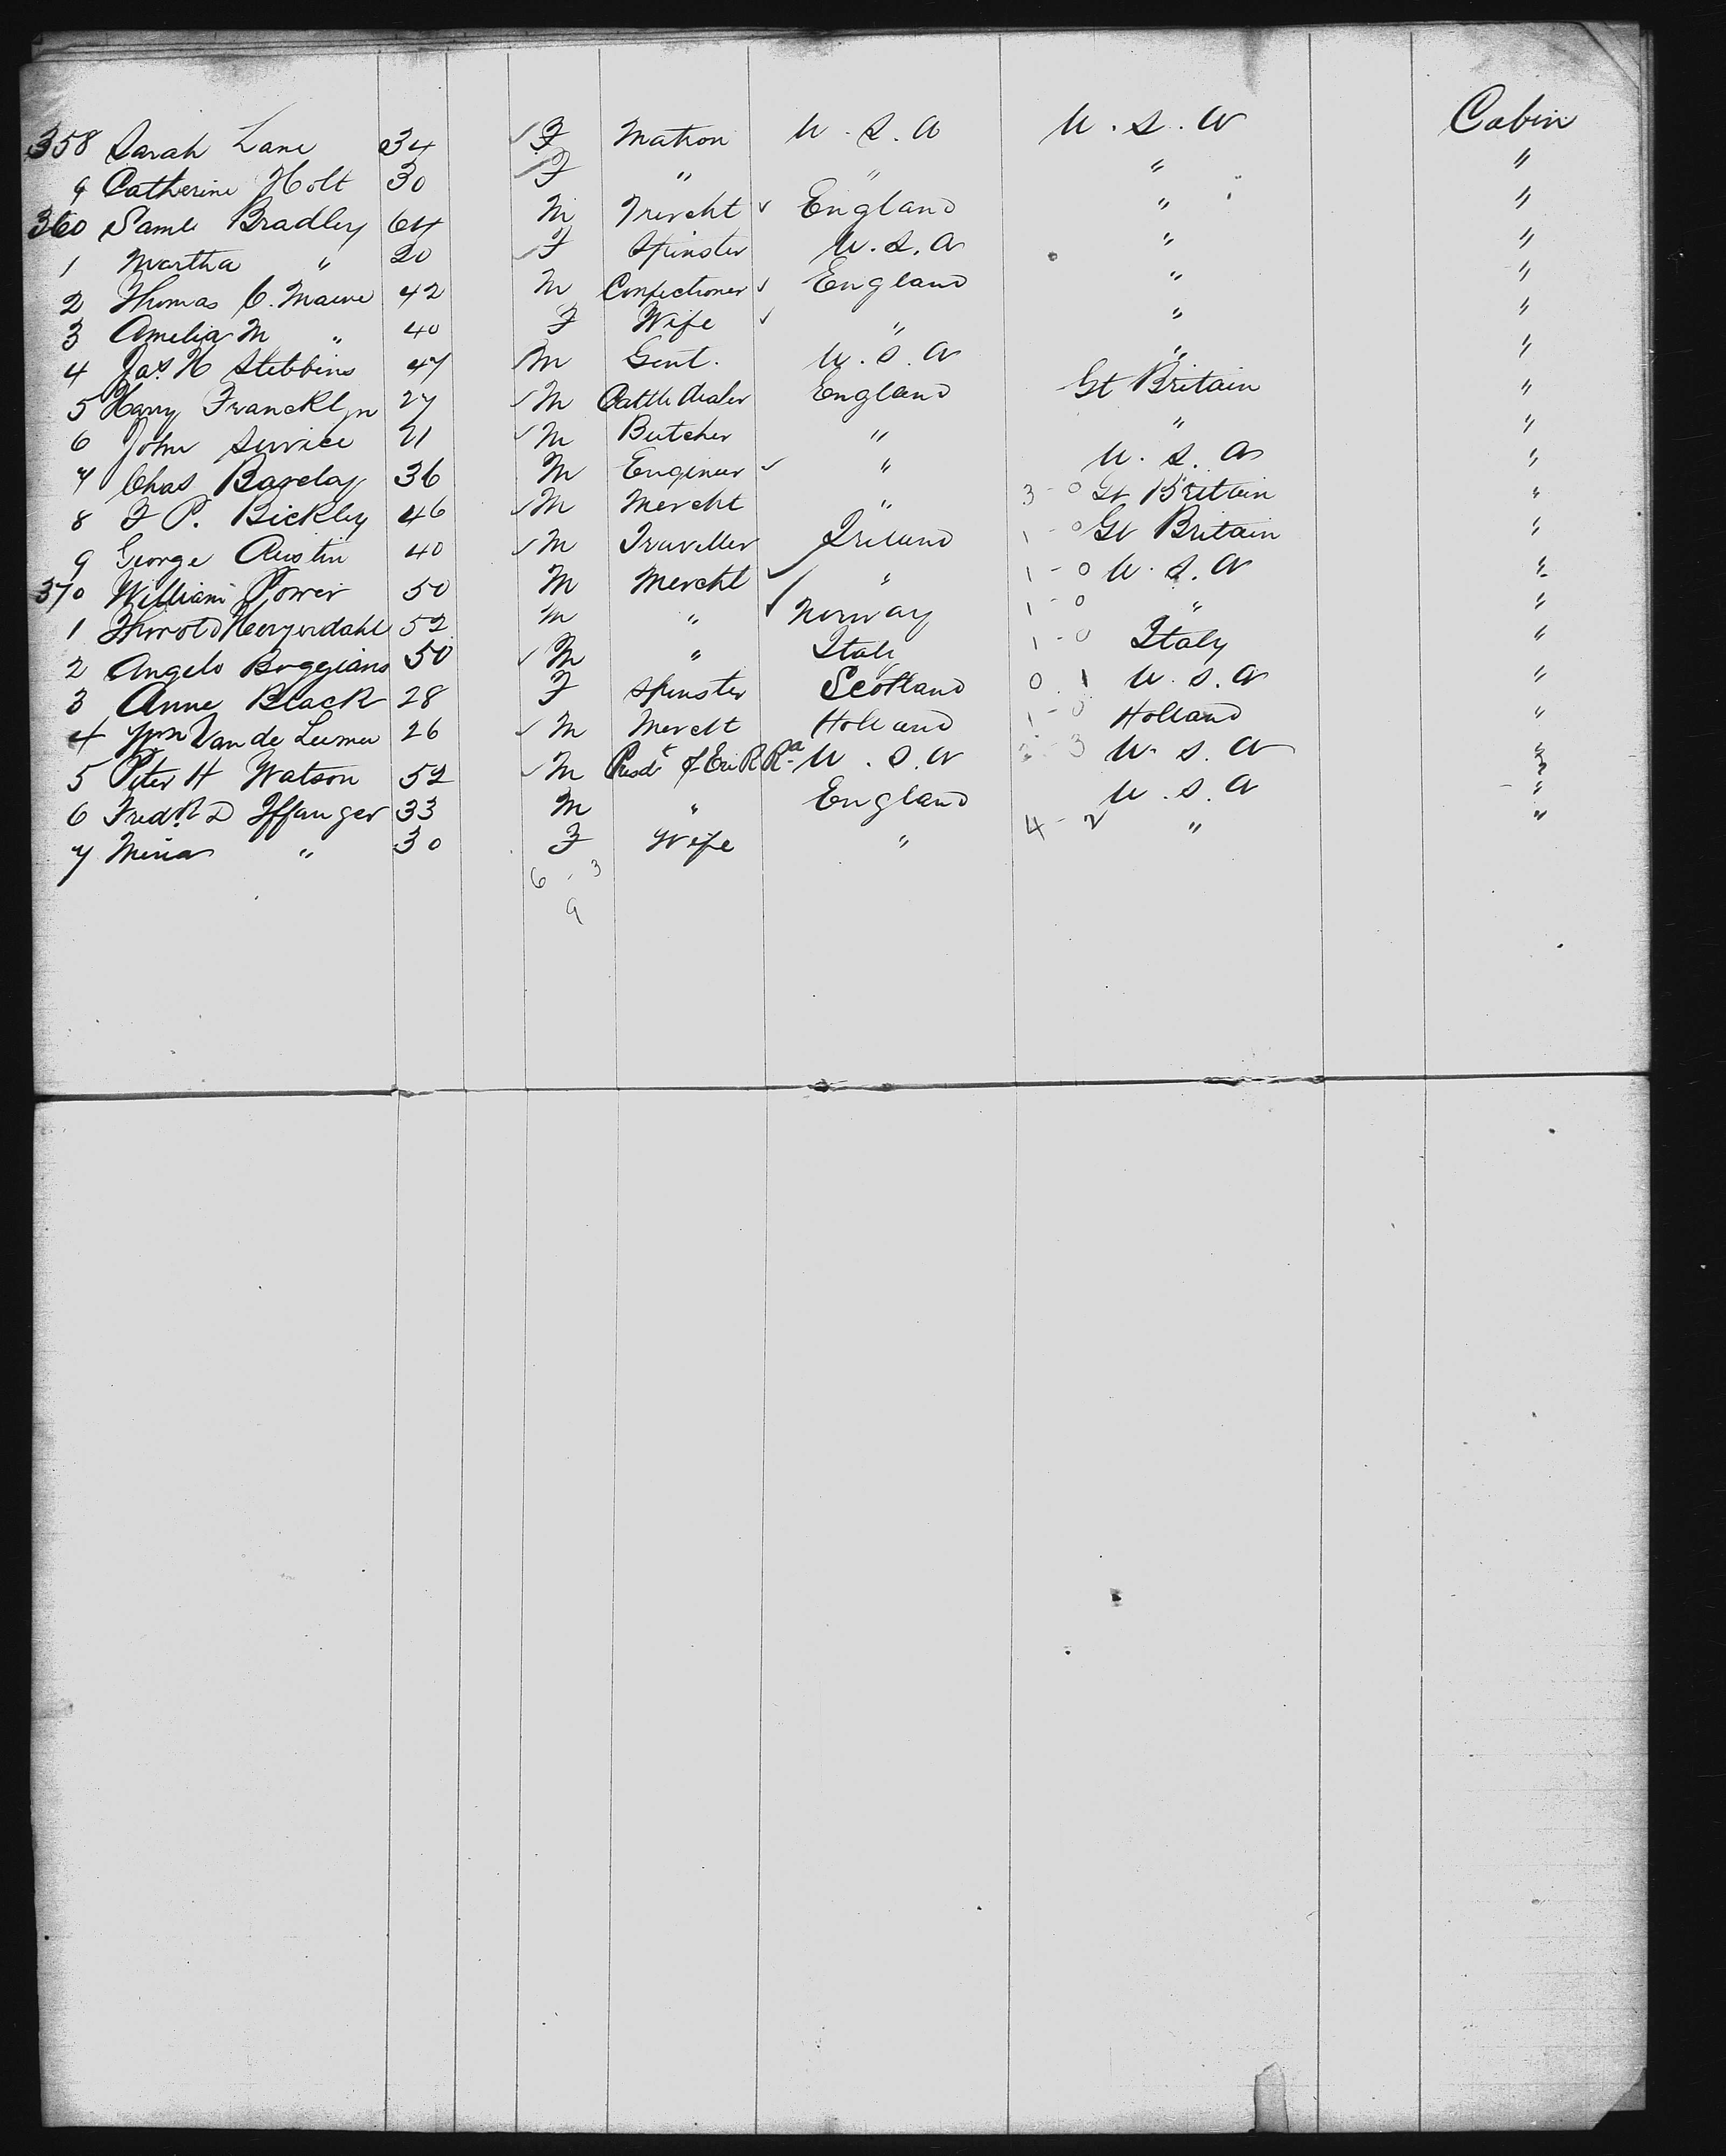 358 Sarah Lane 34 F Matron U.S.A U.S.A Cabin
9 Catherine Holt 30 F " " " "
360 Saml Bradley 64 M Mercht England " "
1 Martha " 20 F Spinster U.S.A " "
2 Thomas C. 42 M Confectioner England " "
3 Amelia M " 40 F Wife " " "
4 Jas H Stebbins 47 M Gent. U.S.A " "
5 Harry Francklyn 27 M Cattle dealer England Gt Britain "
6 John Service 21 M Butcher " " "
7 Chas Barclay 36 M Engineer " U.S.A "
8 F P. Bickley 46 M Mercht " 3-0 Gt Britain "
9 George Austin 40 M Traveller Ireland 1-0 Gt Britain "
370 William Power 50 M Mercht " 1-0 U.S.A "
1 52 M " Norway 1-0 " "
2 Angelo 50 M " Italy 1-0 Italy "
3 Anne Black 28 F Spinster Scotland 0 1 U.S.A "
4 Van de 26 M Mercht Holland 1-0 Holland "
5 Peter H Watson 52 M Presdt of Erie R Ra U.S.A 3 U.S.A "
6 Fredk D 33 M " England U.S.A "
7 " 30 F Wife " 4-2 " "
6-3
9